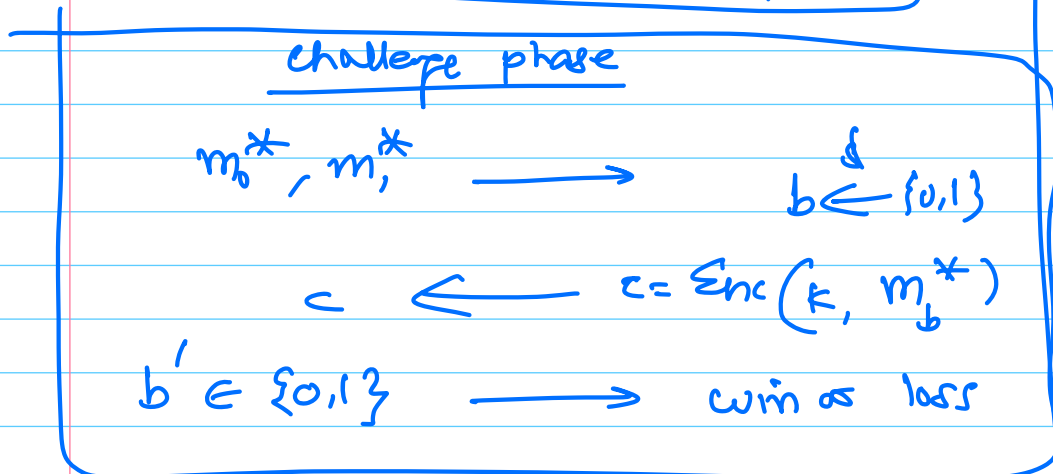 challenge phase
m₀*, m₁* ⟶ b ←$ {0,1}
c ⟵ c = Enc(k, m_b*)
b' ∈ {0,1} ⟶ win or loss